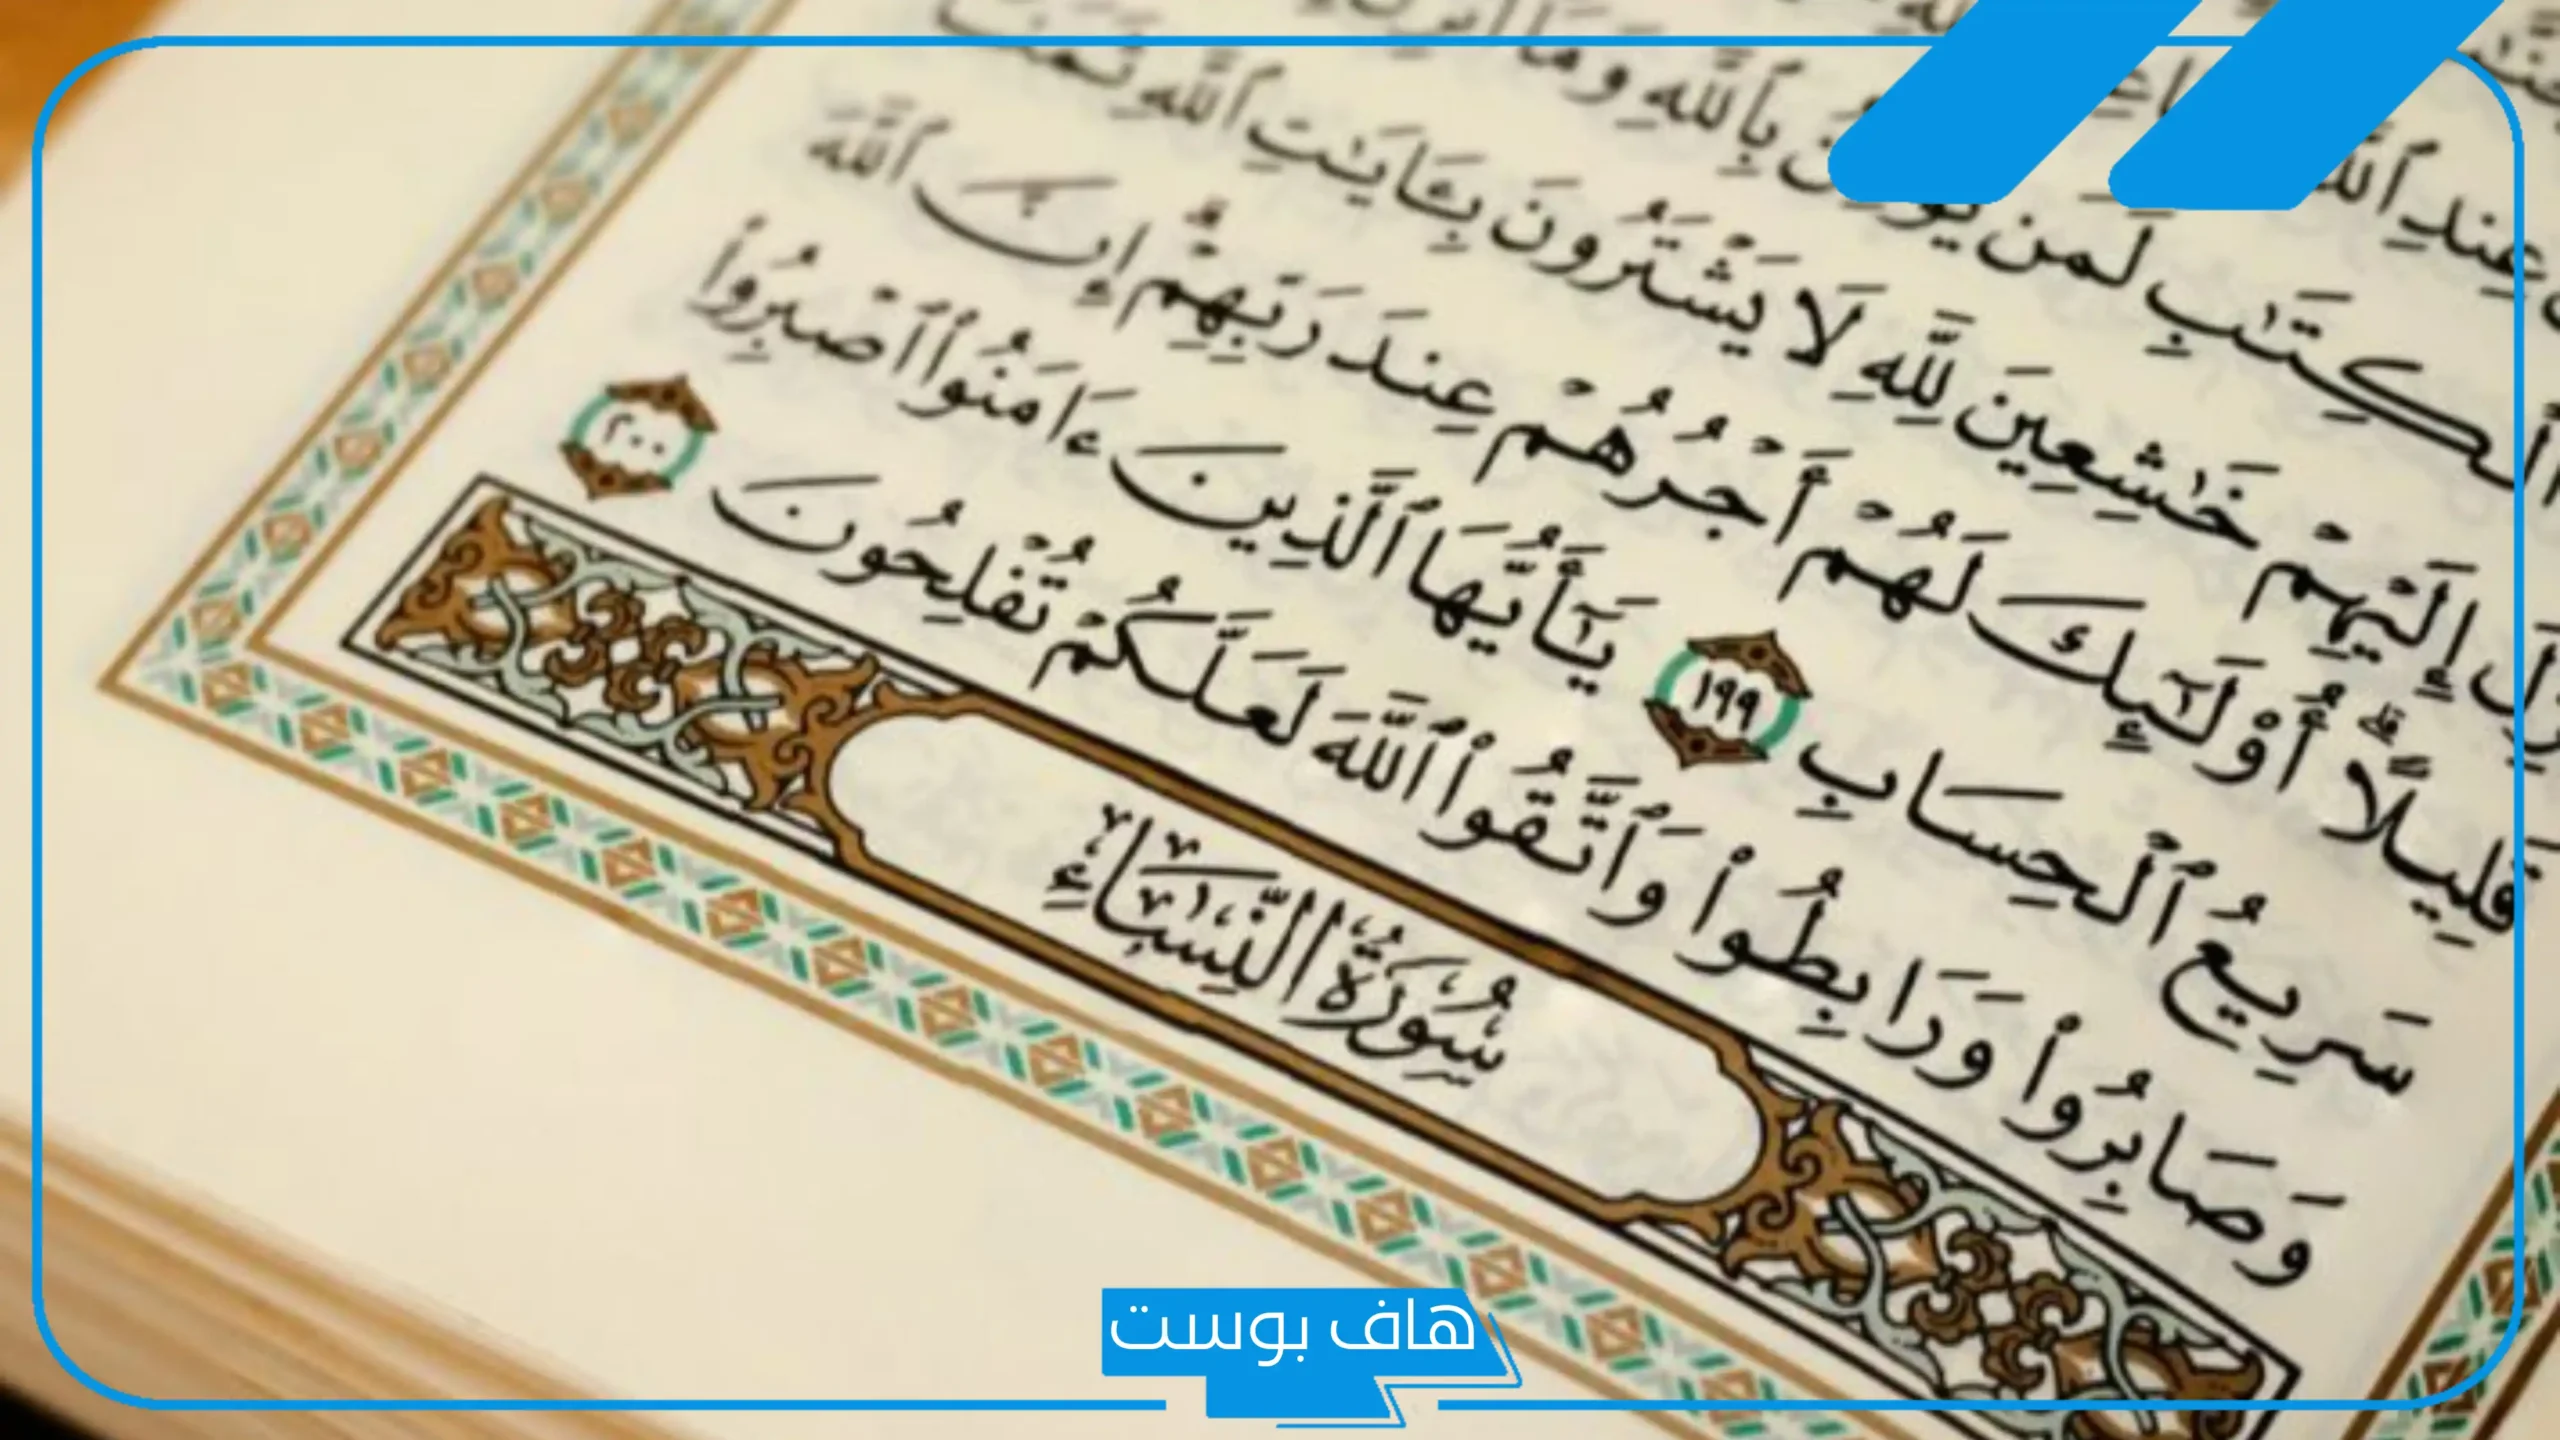 عِندَ ٱللَّهِ
ٱلْكِتَٰبِ لَمَن بِٱللَّهِ وَمَآ
إِلَيْهِمْ خَٰشِعِينَ لِلَّهِ لَا يَشْتَرُونَ بِـَٔايَٰتِ ٱللَّهِ ثَمَنًا
قَلِيلًا ۗ أُو۟لَٰٓئِكَ لَهُمْ أَجْرُهُمْ عِندَ رَبِّهِمْ ۗ إِنَّ ٱللَّهَ
سَرِيعُ ٱلْحِسَابِ ١٩٩ يَٰٓأَيُّهَا ٱلَّذِينَ ءَامَنُوا۟ ٱصْبِرُوا۟
وَصَابِرُوا۟ وَرَابِطُوا۟ وَٱتَّقُوا۟ ٱللَّهَ لَعَلَّكُمْ تُفْلِحُونَ ٢٠٠
سُورَةُ النِّسَاءِ
هاف بوست